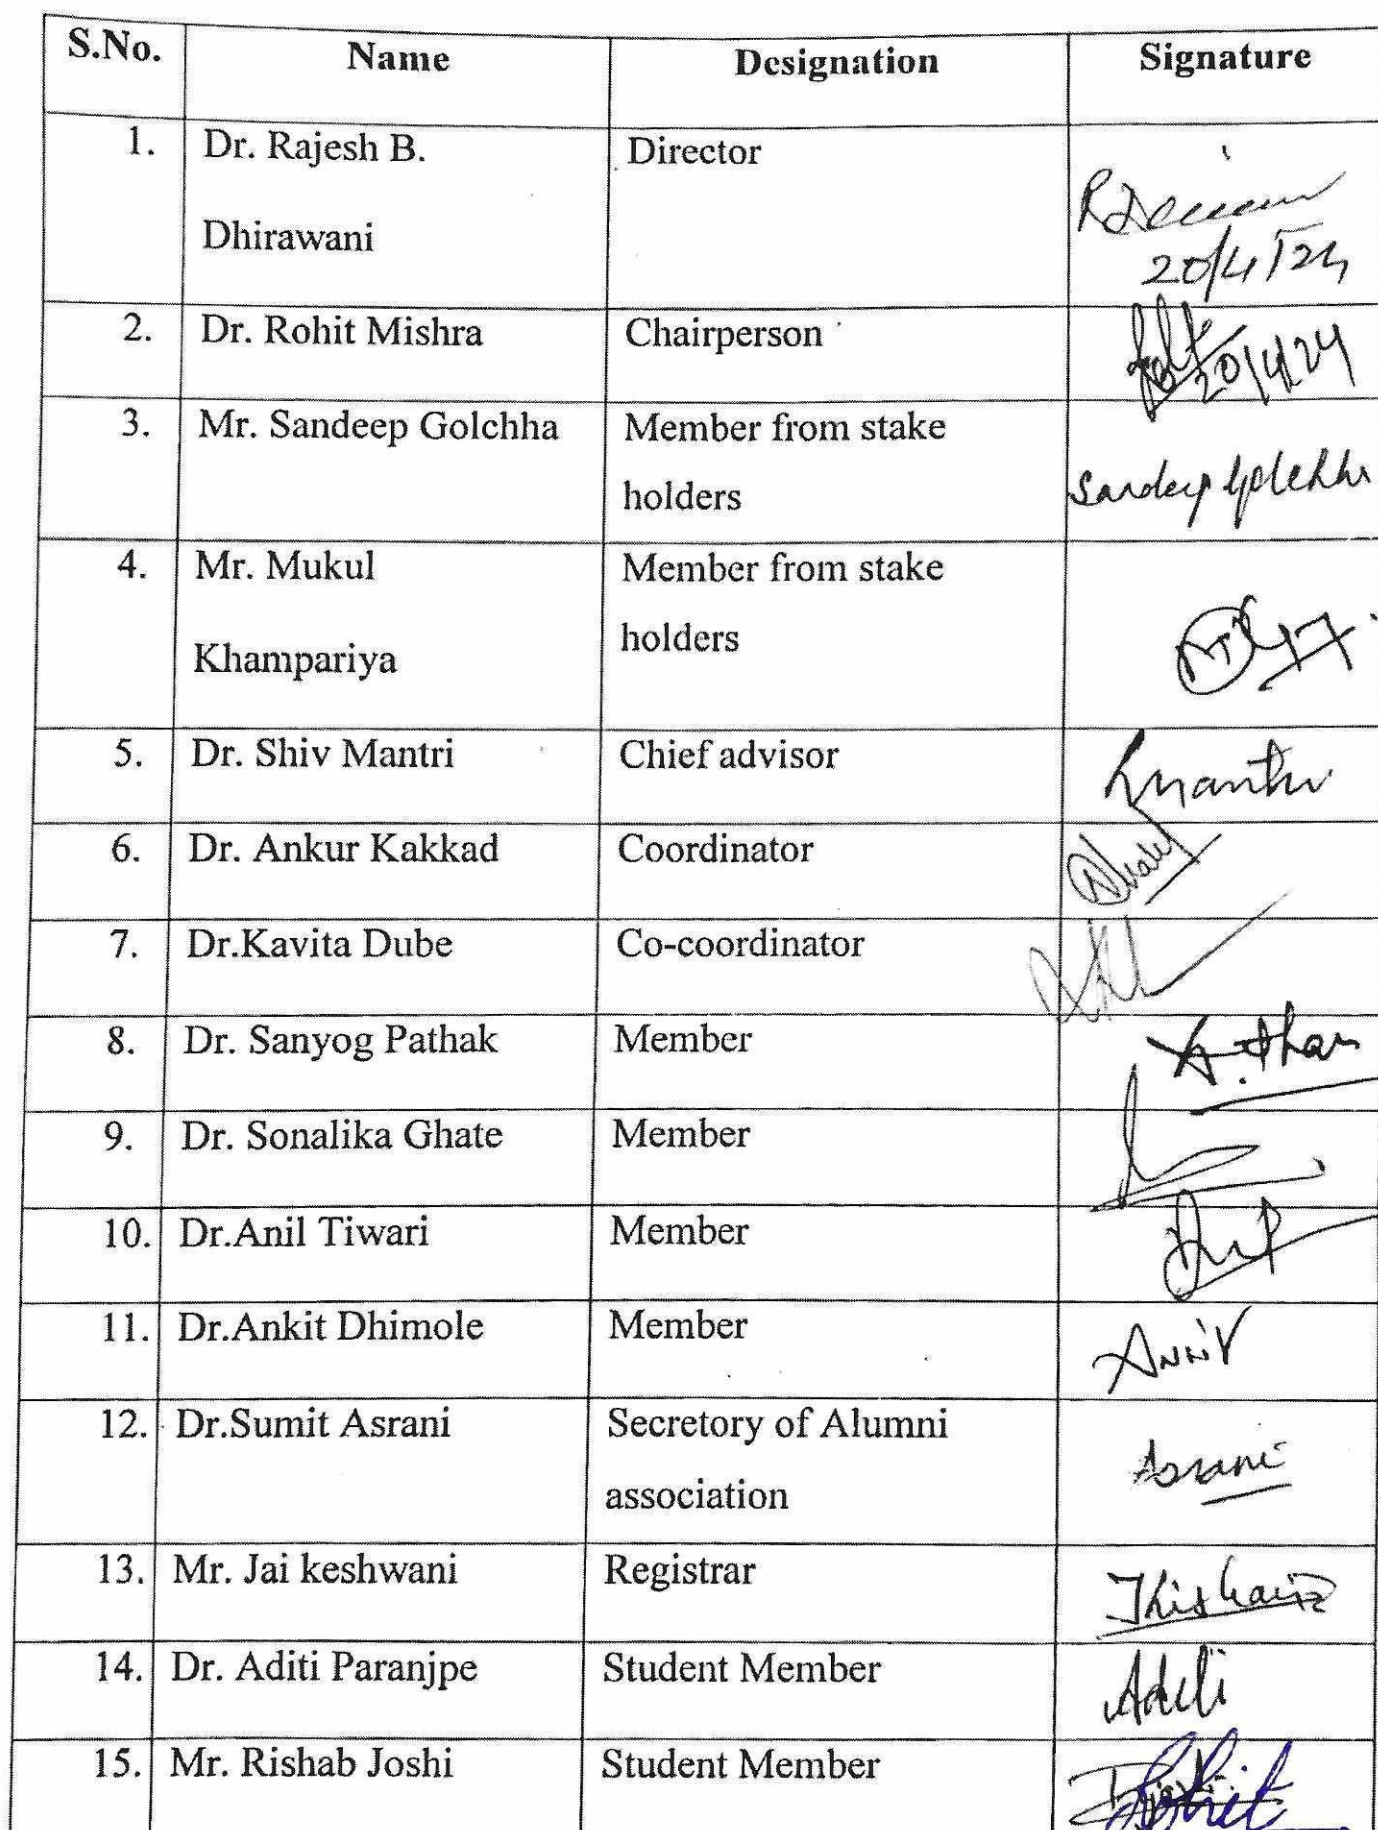 S.No. Name Designation Signature
1. Dr. Rajesh B. Director
Dhirawani
20/4/24
2. Dr. Rohit Mishra Chairperson
20/4/24
3. Mr. Sandeep Golchha Member from stake
holders
Sandeep Golchha
4. Mr. Mukul Member from stake
Khampariya holders
5. Dr. Shiv Mantri Chief advisor
6. Dr. Ankur Kakkad Coordinator
7. Dr.Kavita Dube Co-coordinator
8. Dr. Sanyog Pathak Member
9. Dr. Sonalika Ghate Member
10. Dr.Anil Tiwari Member
11. Dr.Ankit Dhimole Member
12. Dr.Sumit Asrani Secretory of Alumni
association
Asrani
13. Mr. Jai keshwani Registrar
14. Dr. Aditi Paranjpe Student Member Aditi
15. Mr. Rishab Joshi Student Member